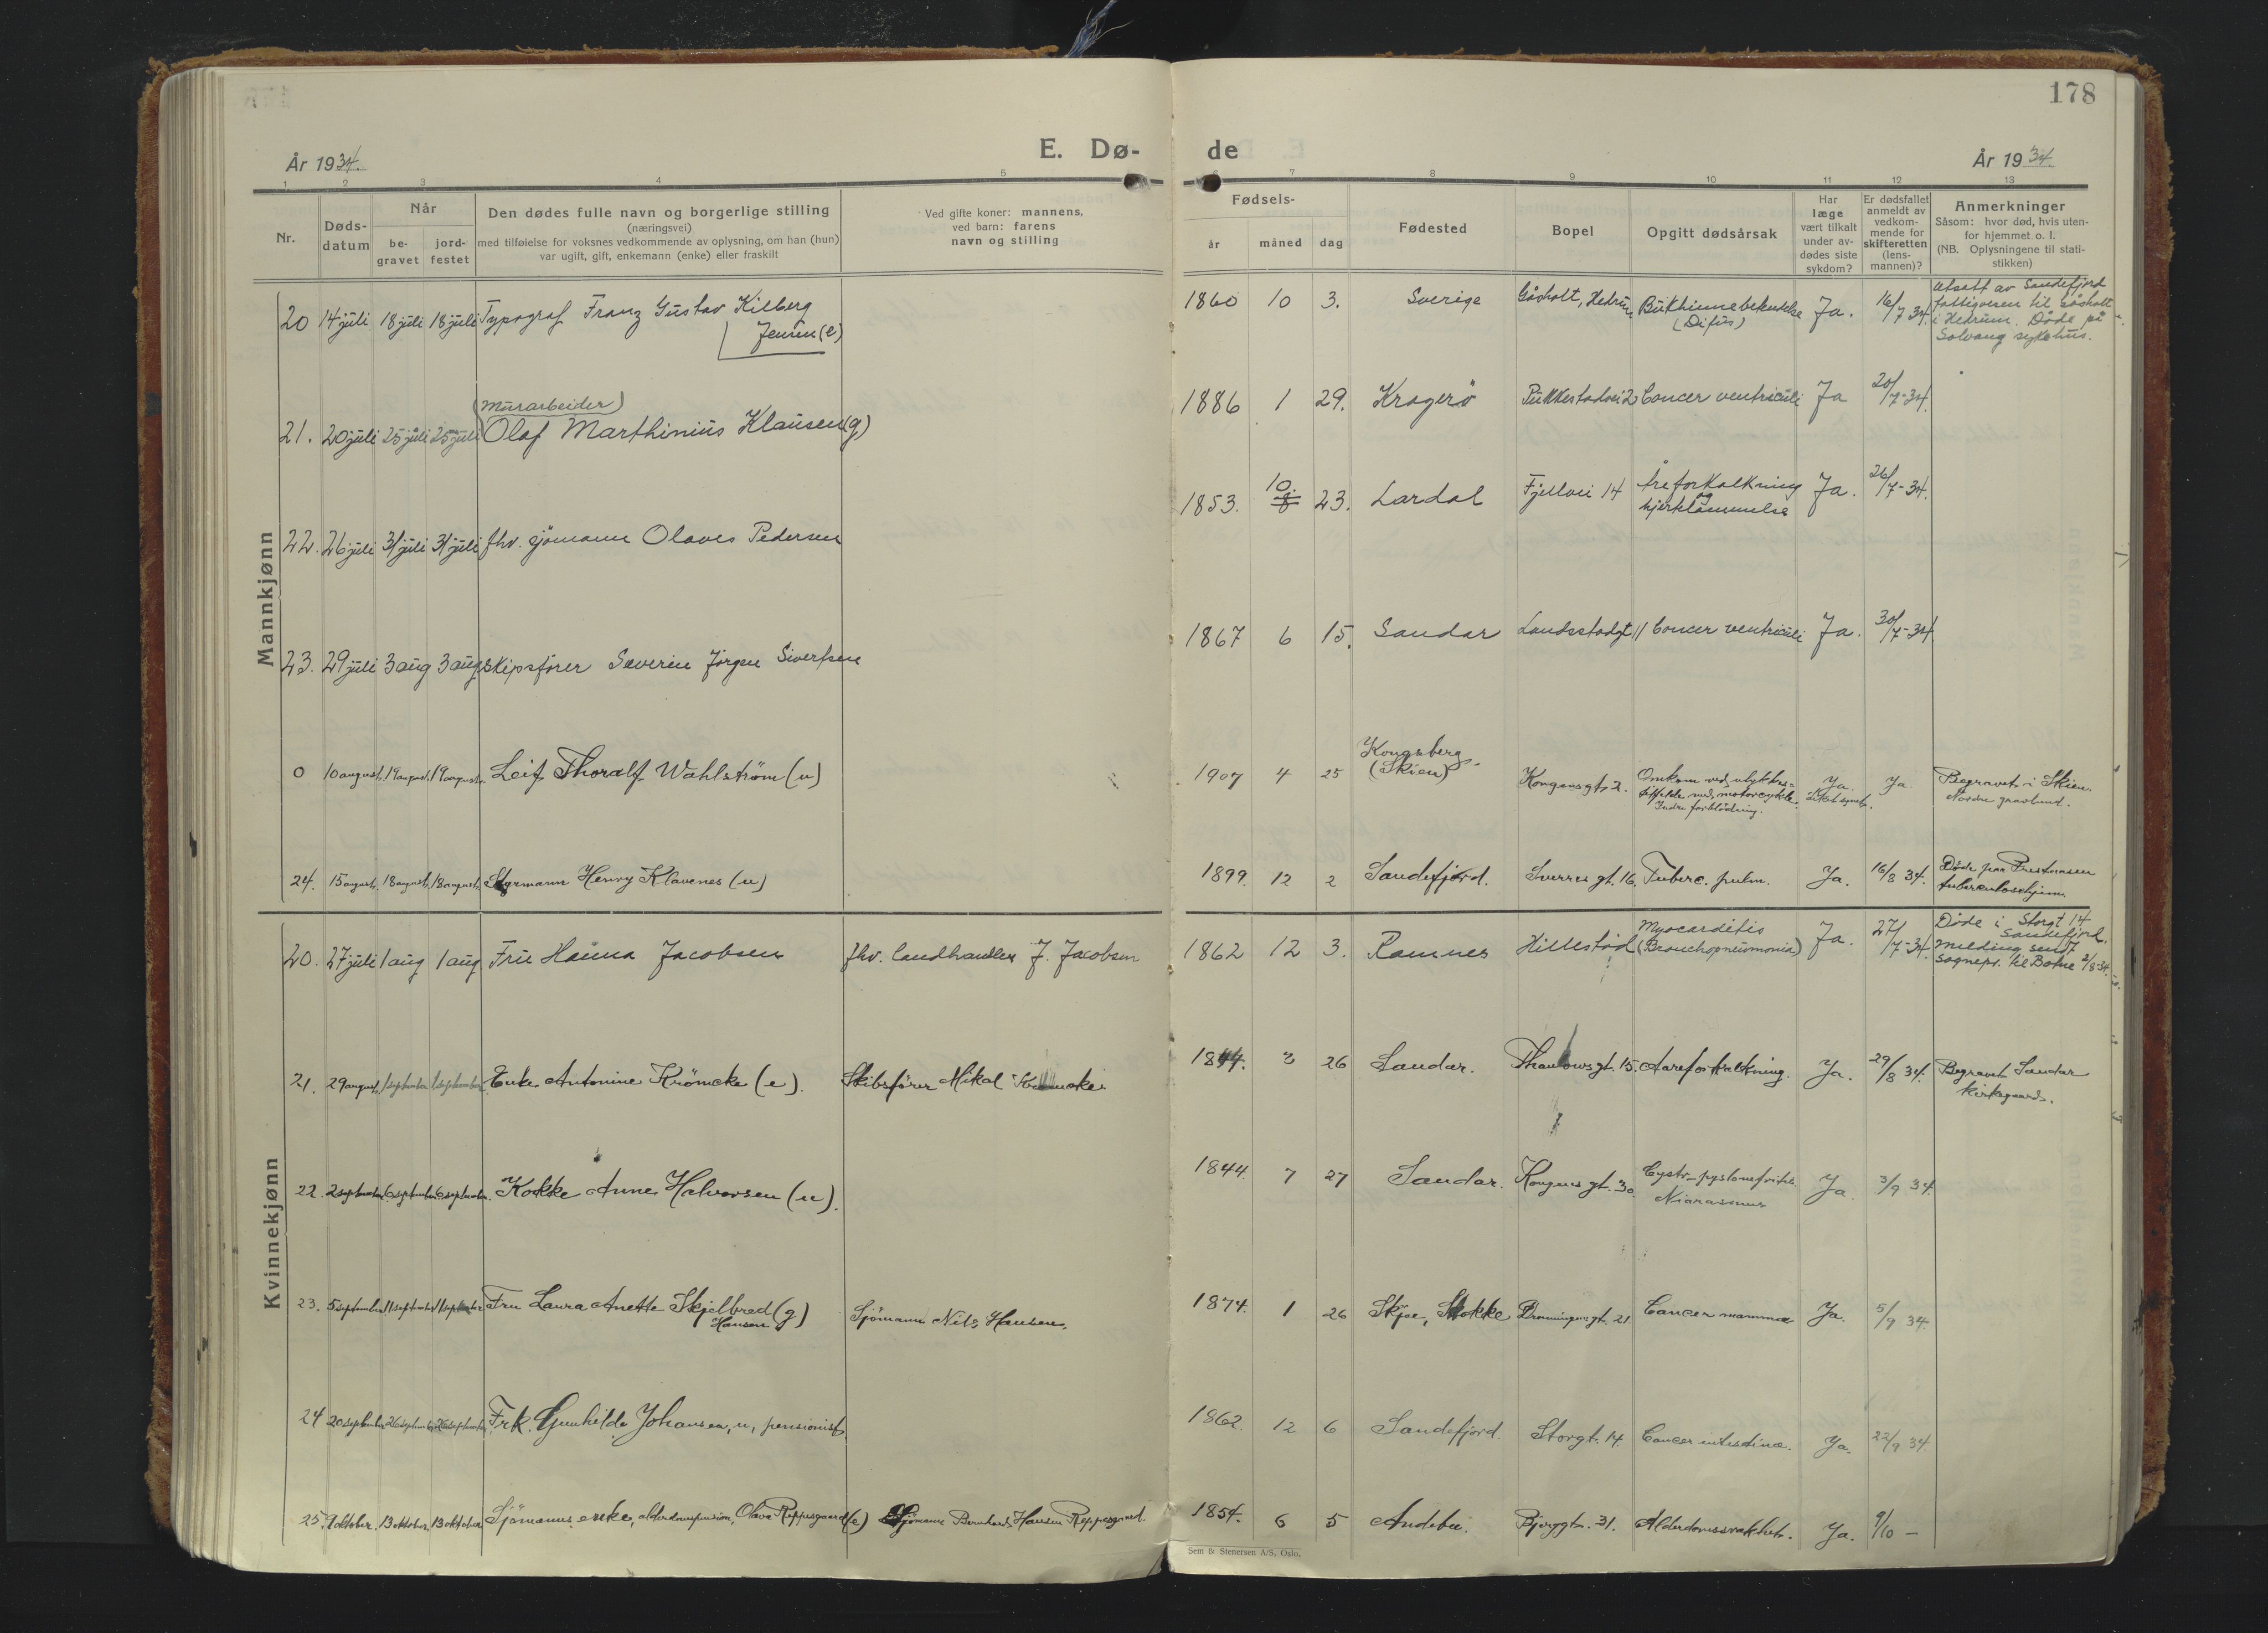 178
E. Dø- de
År 1934.
År 1934
1 2 3 4 5 7 8 9 10 11 12 13
Nr.
Døds-
datum
Når
be-
gravet
jord-
festet
Den dødes fulle navn og borgerlige stilling
(næringsvei)
med tilføielse for voksnes vedkommende av oplysning, om han (hun)
var ugift, gift, enkemann (enke) eller fraskilt
Ved gifte koner: mannens,
ved barn: farens
navn og stilling
Fødsels-
år måned dag
Fødested
Bopel
Opgitt dødsårsak
Har
læge
vært tilkalt
under av-
dødes siste
sykdom?
Er dødsfallet
anmeldt av
vedkom-
mende for
skifteretten
(lens-
mannen)?
Anmerkninger
Såsom: hvor død, hvis uten-
for hjemmet o. l.
(NB. Oplysningene til stati-
stikken)
Mannkjønn
20 14 juli 18 juli 18 juli Typograf Franz Gustav Kilberg
Jensen (e)
1860 10 3. Sverige Gåsholt, Hedrum Bukhinnebetendelse
(Difus)
Ja. 16/7 34.
Utsatt av Sandefjord
fattigvesen til Gåsholt
i Hedrum. Døde på
Solvang sykehus.
(Murarbeider)
21. 20 juli 25 juli 25 juli Olaf Marthinius Klausen (g)
1886 1 29. Kragerö Pukkestadvei 2 Cancer ventriculi Ja 20/7-34.
22. 26 juli 31 juli 31 juli fhv. sjömann Olaves Pedersen
1853. 10. 8 23. Lardal Fjellvei 14 Åreforkalkning
og
hjertelammelse
Ja. 26/7-34.
23. 29 juli 3 aug 3 aug Skipsfører Severin Jørgen Sivertsen
1867 6 15. Sandar Landsstadgt 11 Cancer ventriculi Ja. 30/7-34
0 10 august. 19 august. 19 august. Leif Thoralf Wahlström (u)
1907 4 25 Kongsberg.
(Skien)
Kongensgt. 2. Omkom ved ulykkes-
tilfelde med motorcykle.
Indre forblödning.
Ja.
Ja.
Begravet i Skien.
Nordre gravlund.
24. 15 august. 18 august. 18 august. Styrmann Henry Klavenes (u)
1899. 12 2 Sandefjord. Sverres gt. 16. Tuberc. pulm. Ja. 16/8 34.
Døde paa
tuberkulosehjem.
Kvinnekjønn
20. 27 juli 1 aug 1 aug Fru Hanna Jacobsen fhv. landhandler J. Jacobsen
1862 12 3. Ramnes Hillestad Myocarditis
(Bronchopneumonia)
Ja. 27/7-34.
Døde i Storgt 14
Sandefjord.
Melding sendt
sognepr. til Botne 2/8-34.
21. 29 august. 1 september 1 september Enke Antonine Krömcke (e). Skibsfører Mikal Krömcke
1844. 3 26 Sandar. Thaulowsgt. 15. Aareforkalkning. Ja. 29/8 34.
Begravet Sandar
kirkegaard.
22. 2 september 6 september 6 september. Kokke Anne Halvorsen (u).
1844. 7 27 Sandar. Kongens gt. 30.
Ja. 3/9 34.
23. 5 september 11 september 11 september Fru Laura Anette Skjelbred (g)
Hansen
Sjömann Nils Hansen.
1874. 1 26 Skjee, Stokke Dronningensgt. 21. Cancer mammae Ja. 5/9 34.
24 20 september 26 september 26 september Frk. Gunhilda Johansen, u, pensionist.
1862. 12 6 Sandefjord. Storgt. 14. Cancer intestinae. Ja. 22/9 34.
25. 9 oktober. 13 oktober. 13 oktober. Sjömanns enke, alderdomspension, Olava Reppesgaard (e) Sjömann Bernhard Hansen Reppesgaard.
1854. 6 5 Andebu. Bjerggt. 31. Alderdomssvakhet. Ja. 9/10 -
Sem & Stenersen A/S, Oslo.